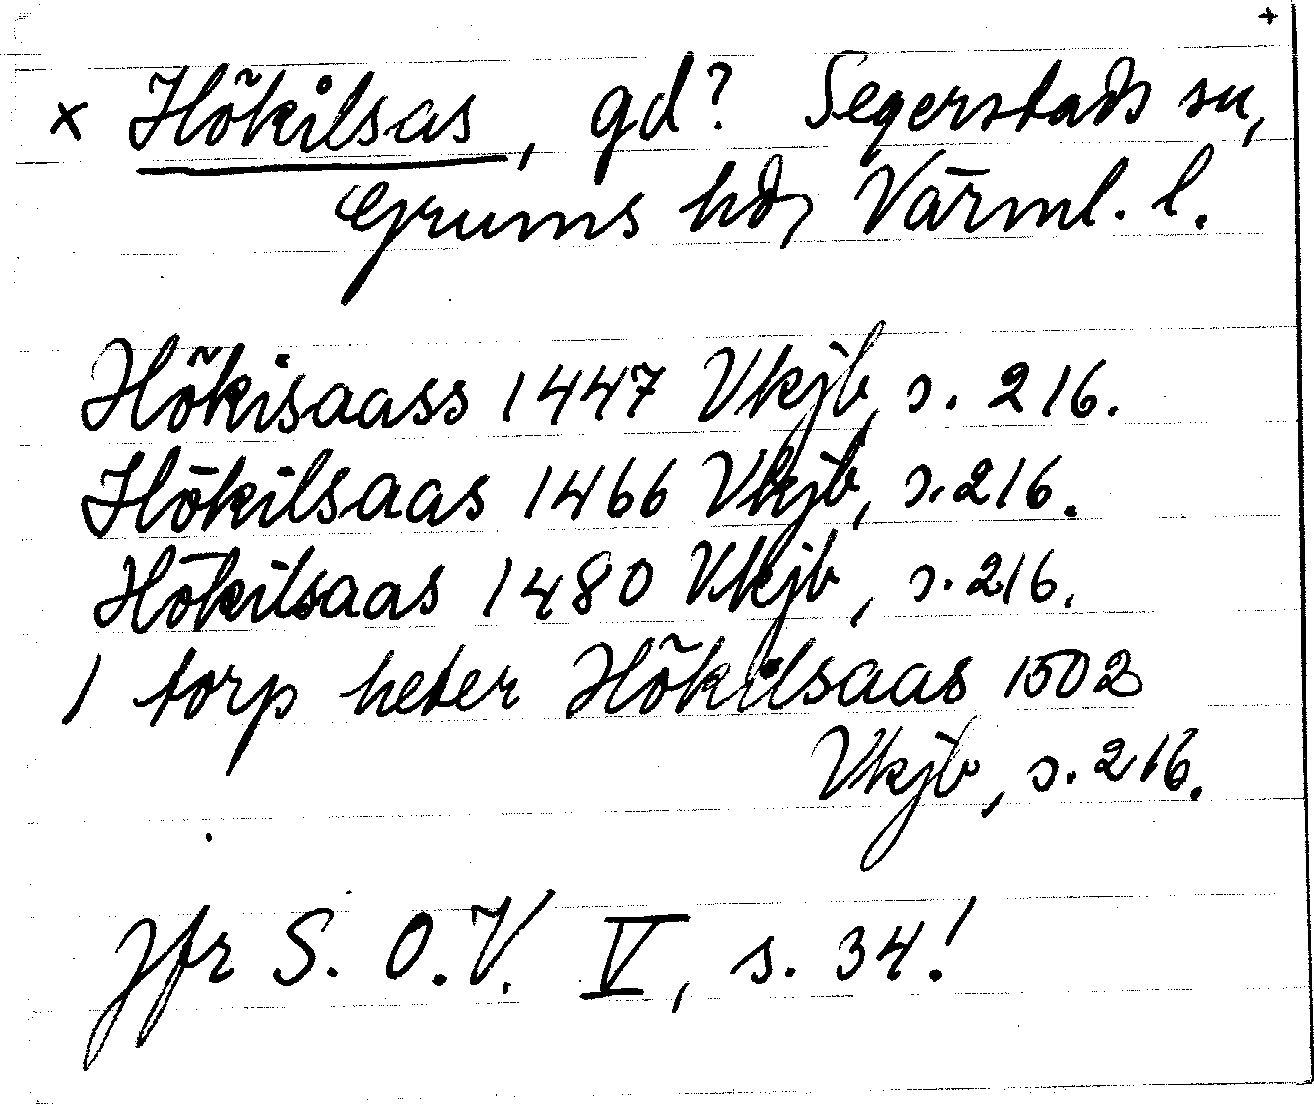 +
x Hökilsas, gd? Segerstads sn,
Grums hd, Värml. l.
Hökisaass 1447 Vkjb, s. 216.
Hökilsaas 1466 Vkjb, s. 216.
Hökilsaas 1480 Vkjb, s. 216.
1 torp heter Hökilsaas 1502
Vkjb, s. 216.
Jfr S. O. V. V, s. 34!